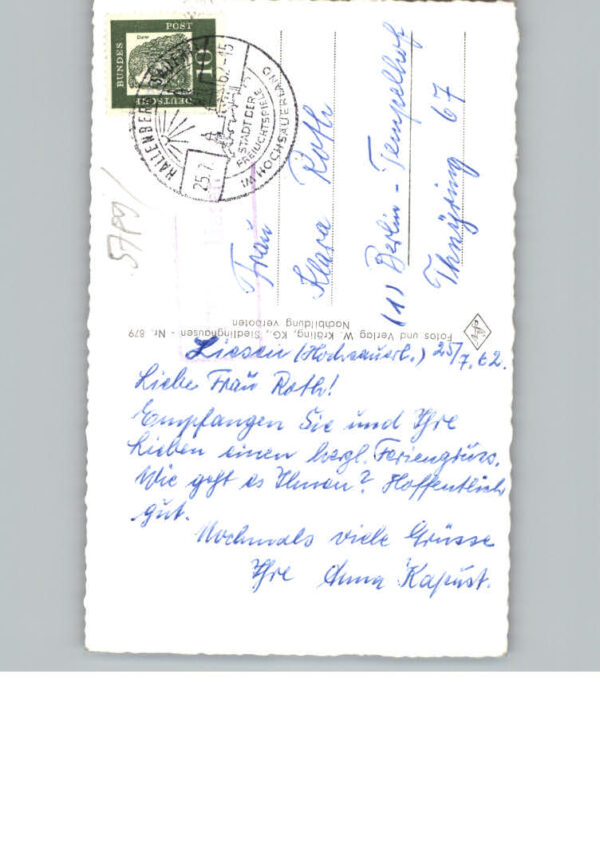 DEUTSCHE
BUNDESPOST
10
HALLENBERG
25.7.62-15
STADT DER
FREILICHTSPIELE
IM HOCHSAUERLAND
5789
Frau
Klara Roth
(1) Berlin - Tempelhof
Thuyring 67
Fotos und Verlag W. Kräling, KG., Siedlinghausen - Nr. 879
Nachbildung verboten
Liesen (Hochsauerl.) 25/7.62.
Liebe Frau Roth!
Empfangen Sie und Ihre
Lieben einen herzl. Feriengruss.
Wie geht es Ihnen? Hoffentlich
gut.
Nochmals viele Grüsse
Ihre Anna Kapust.